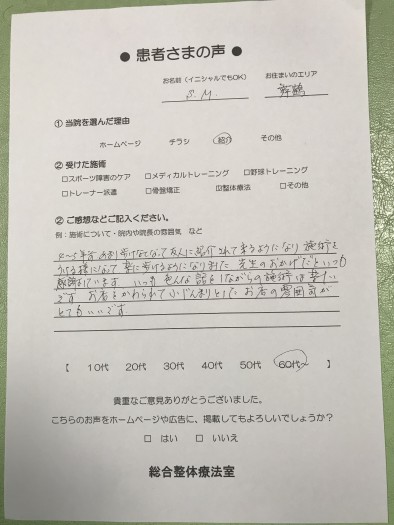 ● 患者さまの声 ●
お名前（イニシャルでもOK） お住まいのエリア
S.M. 舞鶴
① 当院を選んだ理由
ホームページ チラシ 紹介 その他
② 受けた施術
□スポーツ障害のケア □メディカルトレーニング □野球トレーニング
□トレーナー派遣 □骨盤矯正 ☑整体療法 □その他
② ご感想などご記入ください。
例：施術について・院内や院長の雰囲気 など
4～5年前あまり歩けなくなって友人に紹介されて来るようになり施術を
うける様になって楽に歩けるようになりました 先生のおかげだといつも
感謝しています いつも色んな話をしながらの施術は楽しい
です お店をかわられてこじんまりとしたお店の雰囲気が
とてもいいです
【 10代 20代 30代 40代 50代 60代～ 】
貴重なご意見ありがとうございました。
こちらのお声をホームページや広告に、掲載してもよろしいでしょうか？
□ はい □ いいえ
総合整体療法室